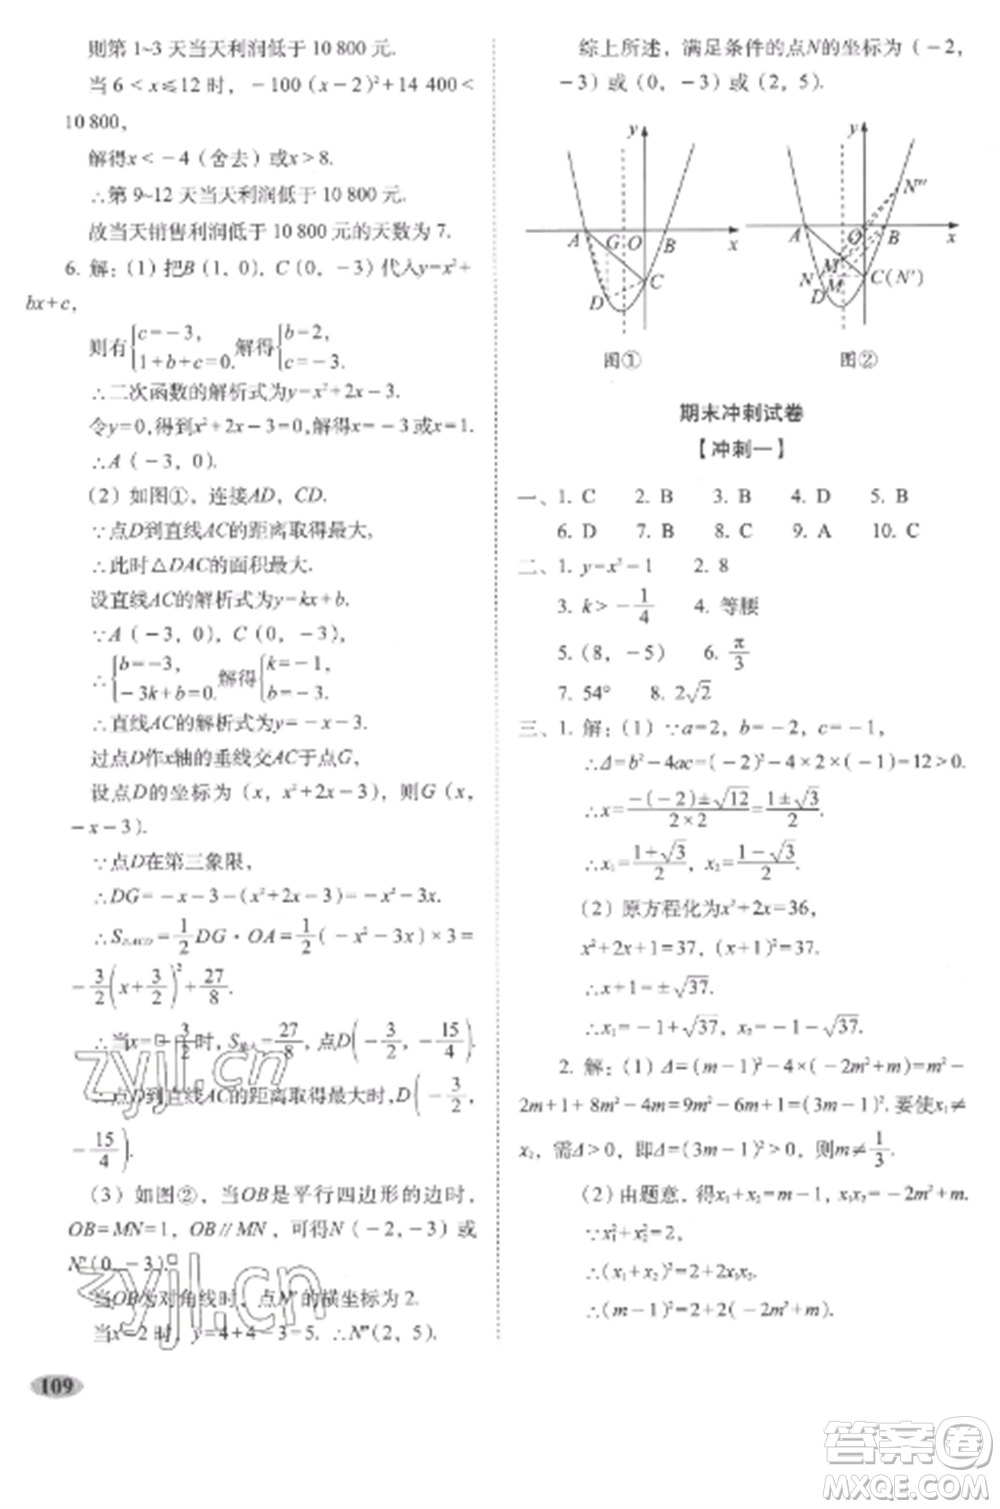 则第 1~3 天当天利润低于 10 800 元.
当 6＜x≤12 时，－100（x－2）²＋14 400＜
10 800，
解得x＜－4（舍去）或x＞8.
∴第 9~12 天当天利润低于 10 800 元.
故当天销售利润低于 10 800 元的天数为 7.
6. 解：（1）把B（1，0），C（0，－3）代入y＝x²＋
bx＋c，
则有{c＝－3，1＋b＋c＝0. 解得{b＝2，c＝－3.
∴二次函数的解析式为y＝x²＋2x－3.
令y＝0，得到x²＋2x－3＝0，解得x＝－3或x＝1.
∴A（－3，0）.
（2）如图①，连接AD，CD.
∵点D到直线AC的距离取得最大，
∴此时△DAC的面积最大.
设直线AC的解析式为y＝kx＋b.
∵A（－3，0），C（0，－3），
∴{b＝－3，－3k＋b＝0. 解得{k＝－1，b＝－3.
∴直线AC的解析式为y＝－x－3.
过点D作x轴的垂线交AC于点G，
设点D的坐标为（x，x²＋2x－3），则G（x，
－x－3）.
∵点D在第三象限，
∴DG＝－x－3－（x²＋2x－3）＝－x²－3x.
∴S△ACD＝1/2 DG·OA＝1/2（－x²－3x）×3＝
－3/2（x＋3/2）²＋27/8.
∴当x＝－3/2时，S最大＝27/8，点D（－3/2，－15/4）.
∴点D到直线AC的距离取得最大时，D（－3/2，
－15/4）.
（3）如图②，当OB是平行四边形的边时，
OB＝MN＝1，OB∥MN，可得N（－2，－3）或
N′（0，－3）.
当OB为对角线时，点N″的横坐标为 2.
当x＝2 时，y＝4＋4－3＝5. ∴N″（2，5）.
109
综上所述，满足条件的点N的坐标为（－2，
－3）或（0，－3）或（2，5）.
y
A G O B x
D C
图①
y
N‴
A O B x
M
N C(N′)
D M
图②
期末冲刺试卷
【冲刺一】
一、1. C 2. B 3. B 4. D 5. B
6. D 7. B 8. C 9. A 10. C
二、1. y＝x²－1 2. 8
3. k＞－1/4 4. 等腰
5. （8，－5） 6. π/3
7. 54° 8. 2√2
三、1. 解：（1）∵a＝2，b＝－2，c＝－1，
∴Δ＝b²－4ac＝（－2）²－4×2×（－1）＝12＞0.
∴x＝(－（－2）±√12)/(2×2)＝(1±√3)/2.
∴x₁＝(1＋√3)/2，x₂＝(1－√3)/2.
（2）原方程化为x²＋2x＝36，
x²＋2x＋1＝37，（x＋1）²＝37.
∴x＋1＝±√37.
∴x₁＝－1＋√37，x₂＝－1－√37.
2. 解：（1）Δ＝（m－1）²－4×（－2m²＋m）＝m²－
2m＋1＋8m²－4m＝9m²－6m＋1＝（3m－1）². 要使x₁≠
x₂，需Δ＞0，即Δ＝（3m－1）²＞0，则m≠1/3.
（2）由题意，得x₁＋x₂＝1－m，x₁x₂＝－2m²＋m.
∵x₁²＋x₂²＝2，
∴（x₁＋x₂）²－2x₁x₂＝2.
∴（m－1）²－2（－2m²＋m）＝2.
zyjl.cn
zyjl.cn
答案卷
MXQE.COM